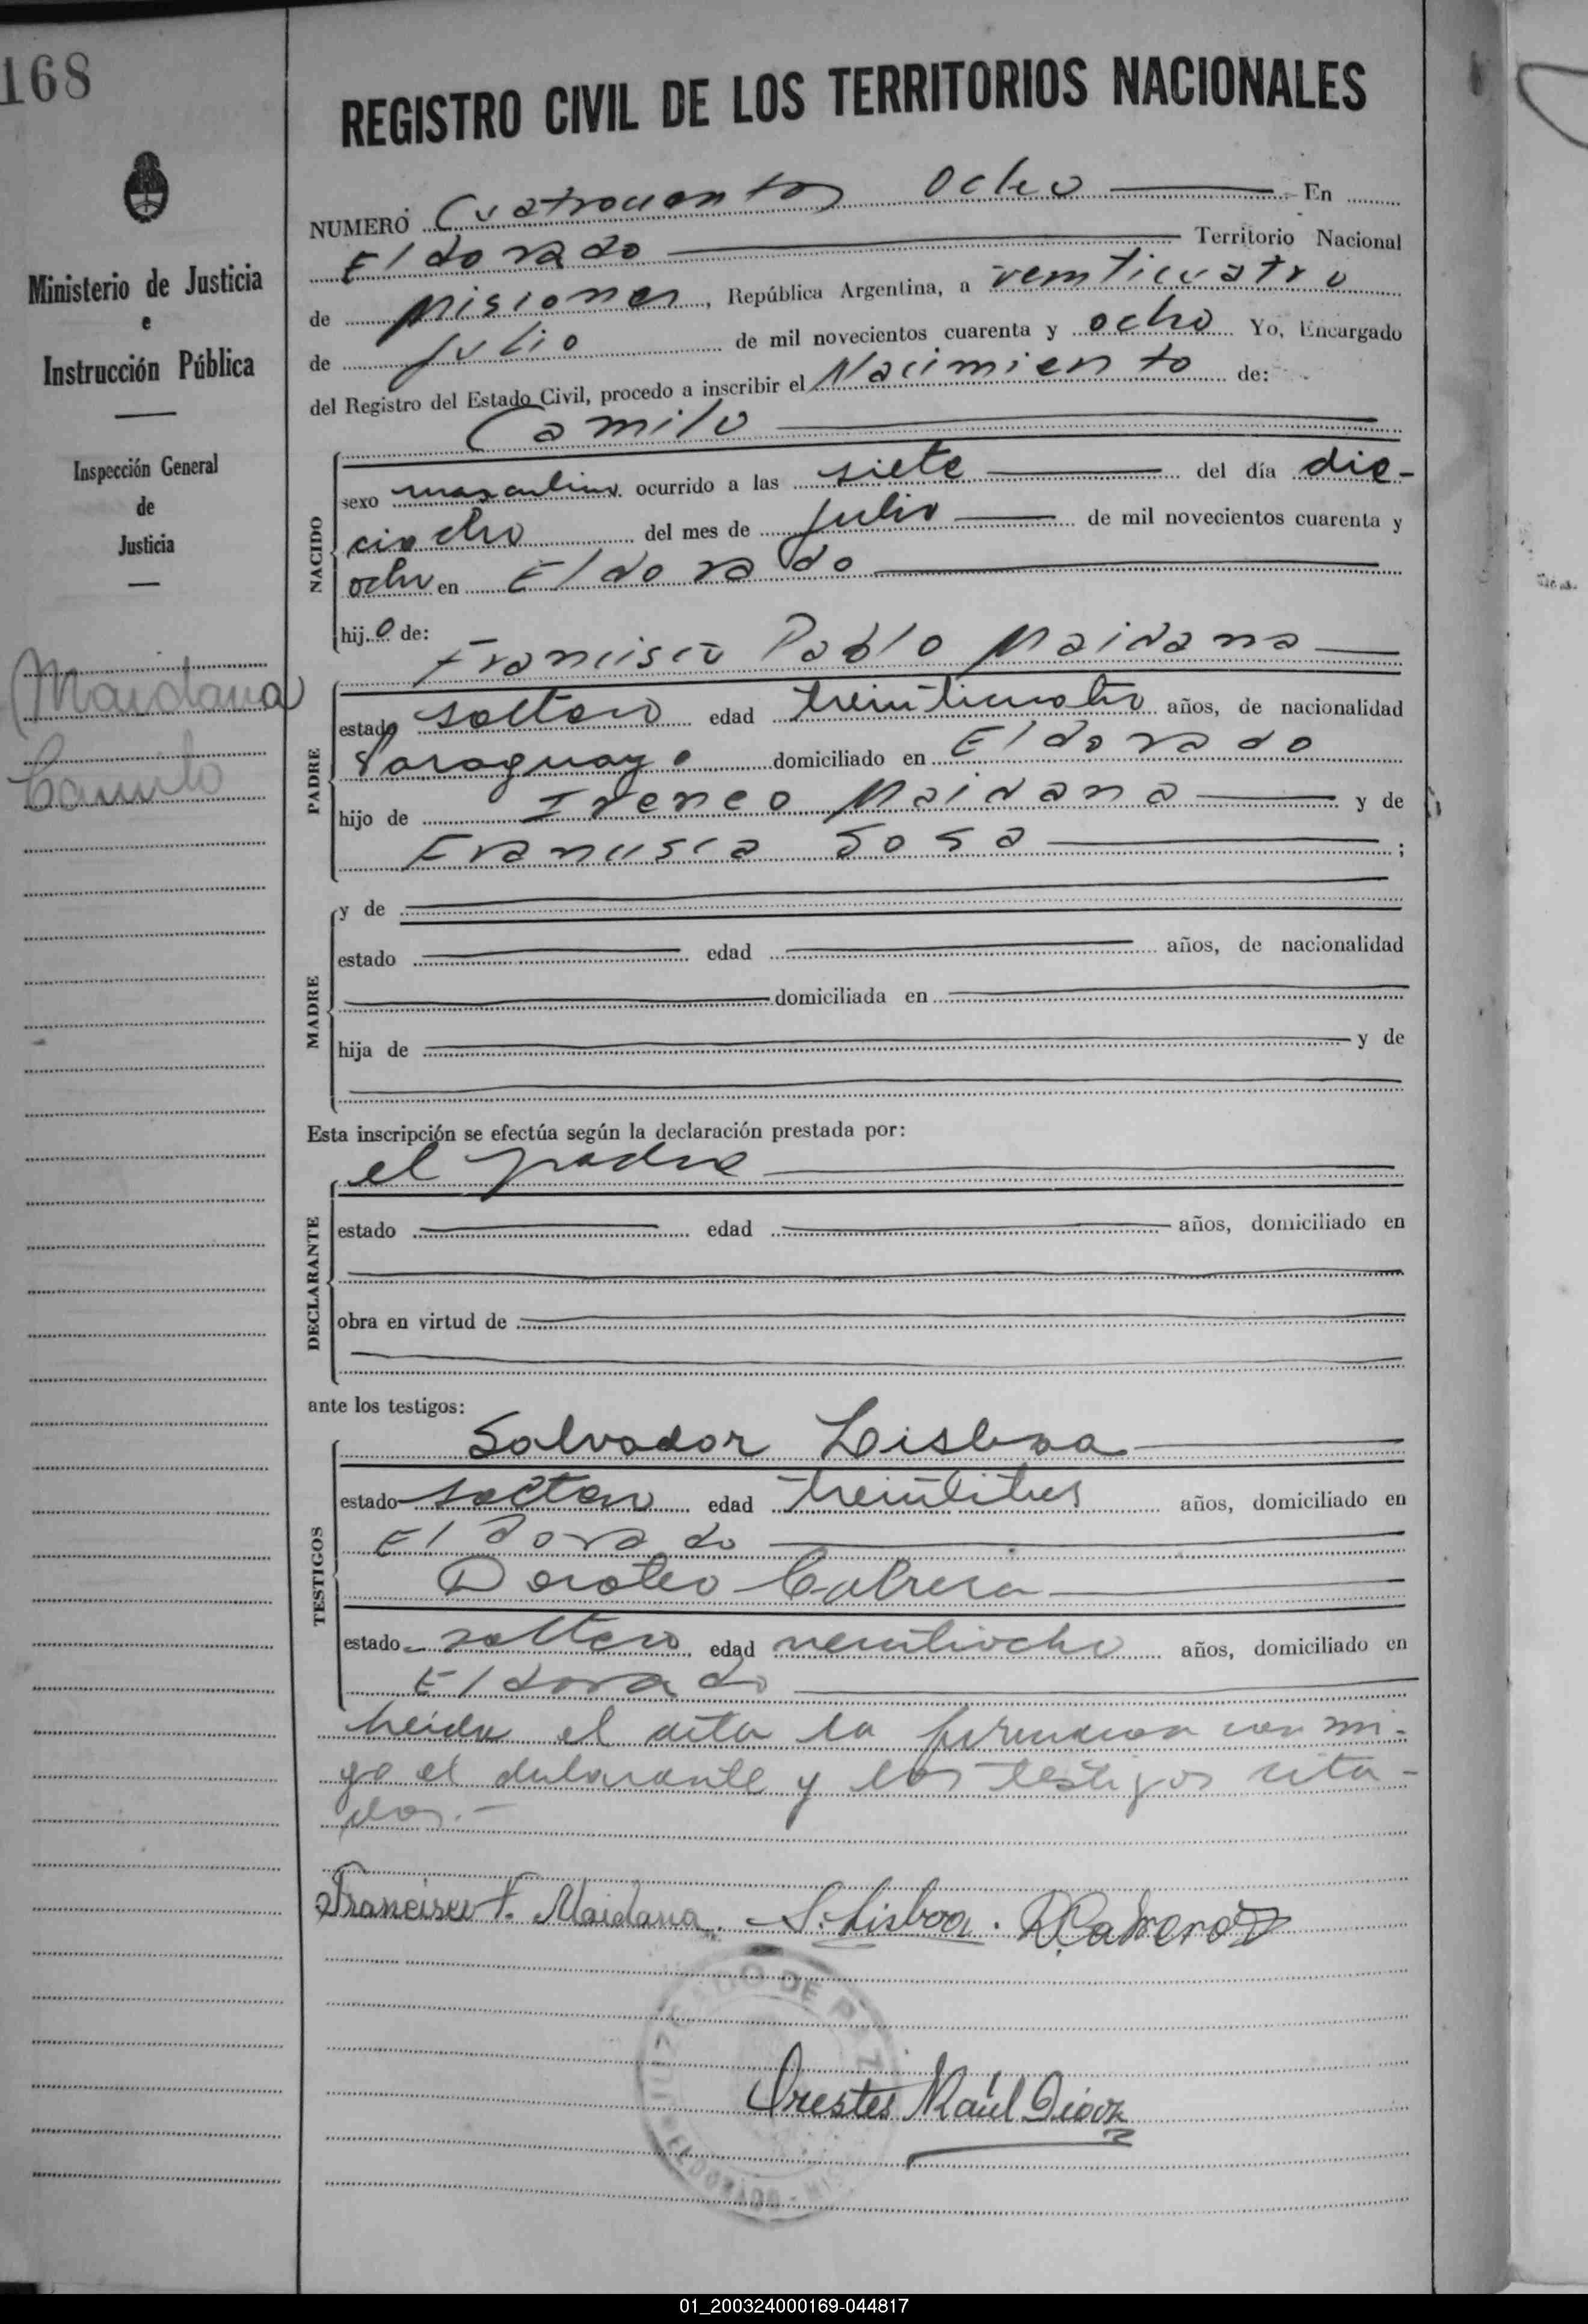 168
REGISTRO CIVIL DE LOS TERRITORIOS NACIONALES
Ministerio de Justicia
e
Instrucción Pública
Inspección General
de
Justicia
Maidana
Camilo
NUMERO Cuatrocientos Ocho En
Eldorado Territorio Nacional
de Misiones, República Argentina, a veinticuatro
de Julio de mil novecientos cuarenta y ocho Yo, Encargado
del Registro del Estado Civil, procedo a inscribir el Nacimiento de:
Camilo
NACIDO
sexo masculino ocurrido a las siete del día die-
ciocho del mes de julio de mil novecientos cuarenta y
ocho en Eldorado
hij.o de:
Francisco Pablo Maidana
PADRE
estado soltero edad treinticuatro años, de nacionalidad
Paraguayo domiciliado en Eldorado
hijo de Ireneo Maidana y de
Francisca Sosa ;
MADRE
y de
estado edad años, de nacionalidad
domiciliada en
hija de y de
Esta inscripción se efectúa según la declaración prestada por:
el padre
DECLARANTE
estado edad años, domiciliado en
obra en virtud de
ante los testigos:
TESTIGOS
Salvador Lisboa
estado soltero edad treintitres años, domiciliado en
Eldorado
Doroteo Cabrera
estado soltero edad veintiocho años, domiciliado en
Eldorado
Leida el acta la firmaron conmi-
go el declarante y los testigos cita-
dos.-
Francisco P. Maidana. S. Lisboa. D Cabrera
JUZGADO DE PAZ
ELDORADO - MIS
Orestes Raúl Diaz
01_200324000169-044817